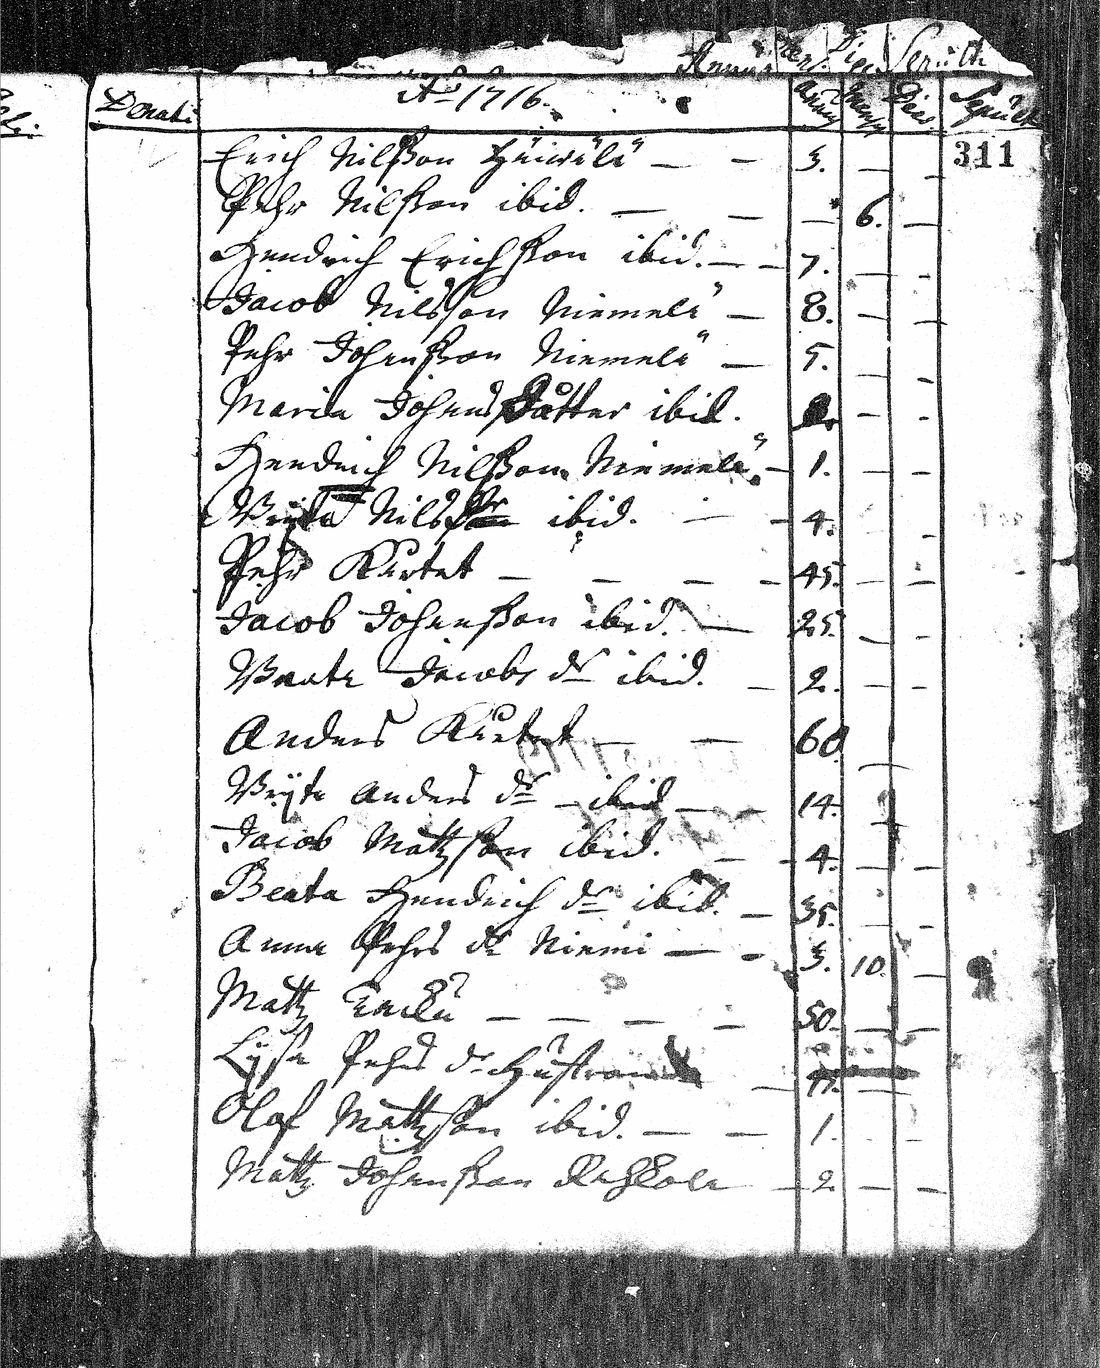 Donati Ao 1716. Annus Mens. Dies. Sepult.
Erich Nilsson Heickilä — — 3. — — 311
Pehr Nilsson ibid. — — — 6. —
Hendrich Erichsson ibid. — — 7. — —
Jacob Nilsson Niemelä — 8. — —
Pehr Johansson Niemelä — 5. — —
Maria Johans Dotter ibid. — —
Hendrich Nilsson Niemelä — 1. — —
Bryta Nils dr ibid. — — 4. —
Pehr Kurtet — — — — 45. — —
Jacob Johansson ibid. — 25. — —
Beata Jacobs dr ibid. — 2. — —
Anders Kurtet — — 60 —
Bryta Anders dr — ibid — — 14. —
Jacob Mattsson ibid. — — 4. — —
Beata Hendrich dr ibid. — 35. — —
Anna Pehrs dr Niemi — — 3. 10. —
Mattz — — — — 50. — —
Lisa Pehrs dr Hustru —
Olof Mattzson ibid. — — 1. — —
Mattz Johansson — 2 — —